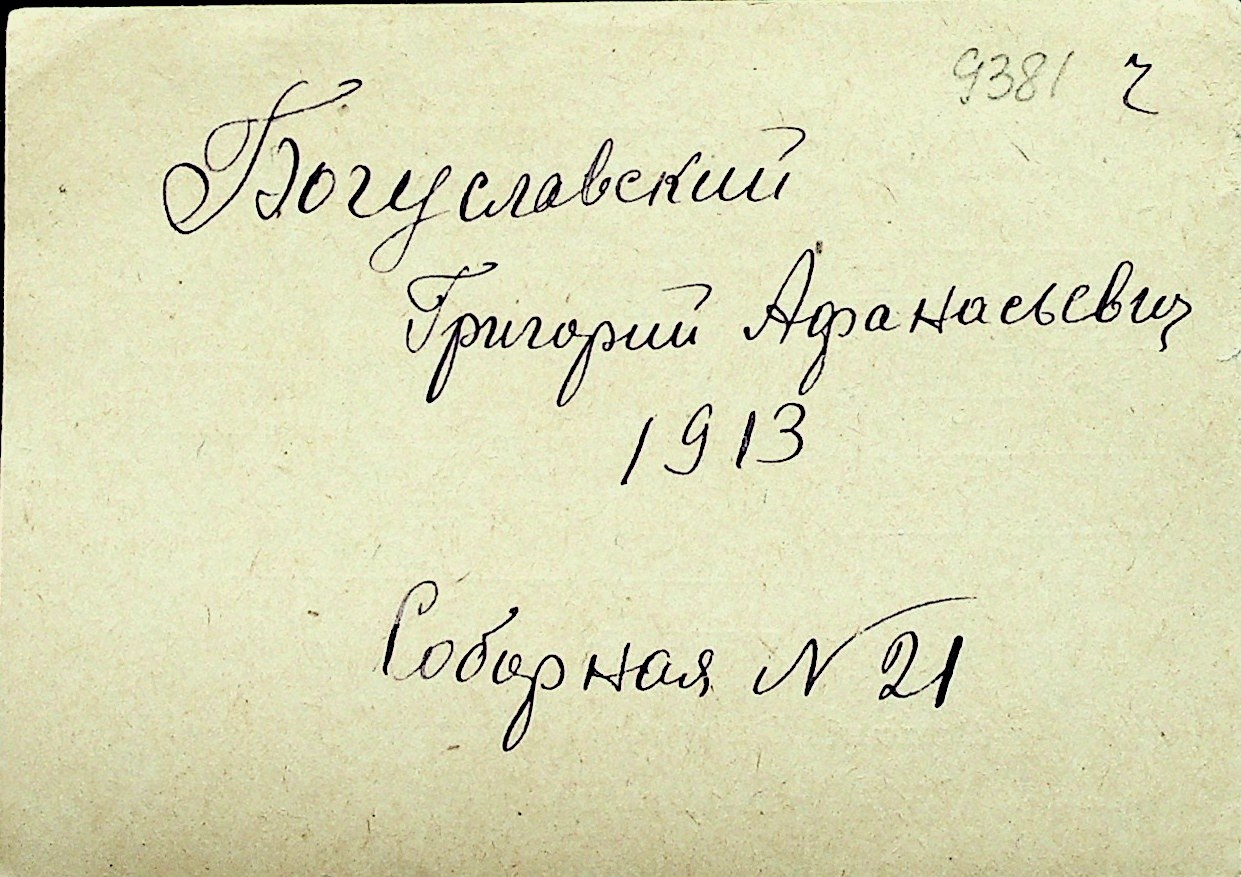 9381 ч
Богуславский
Григорий Афанасьевич
1913
Соборная N 21